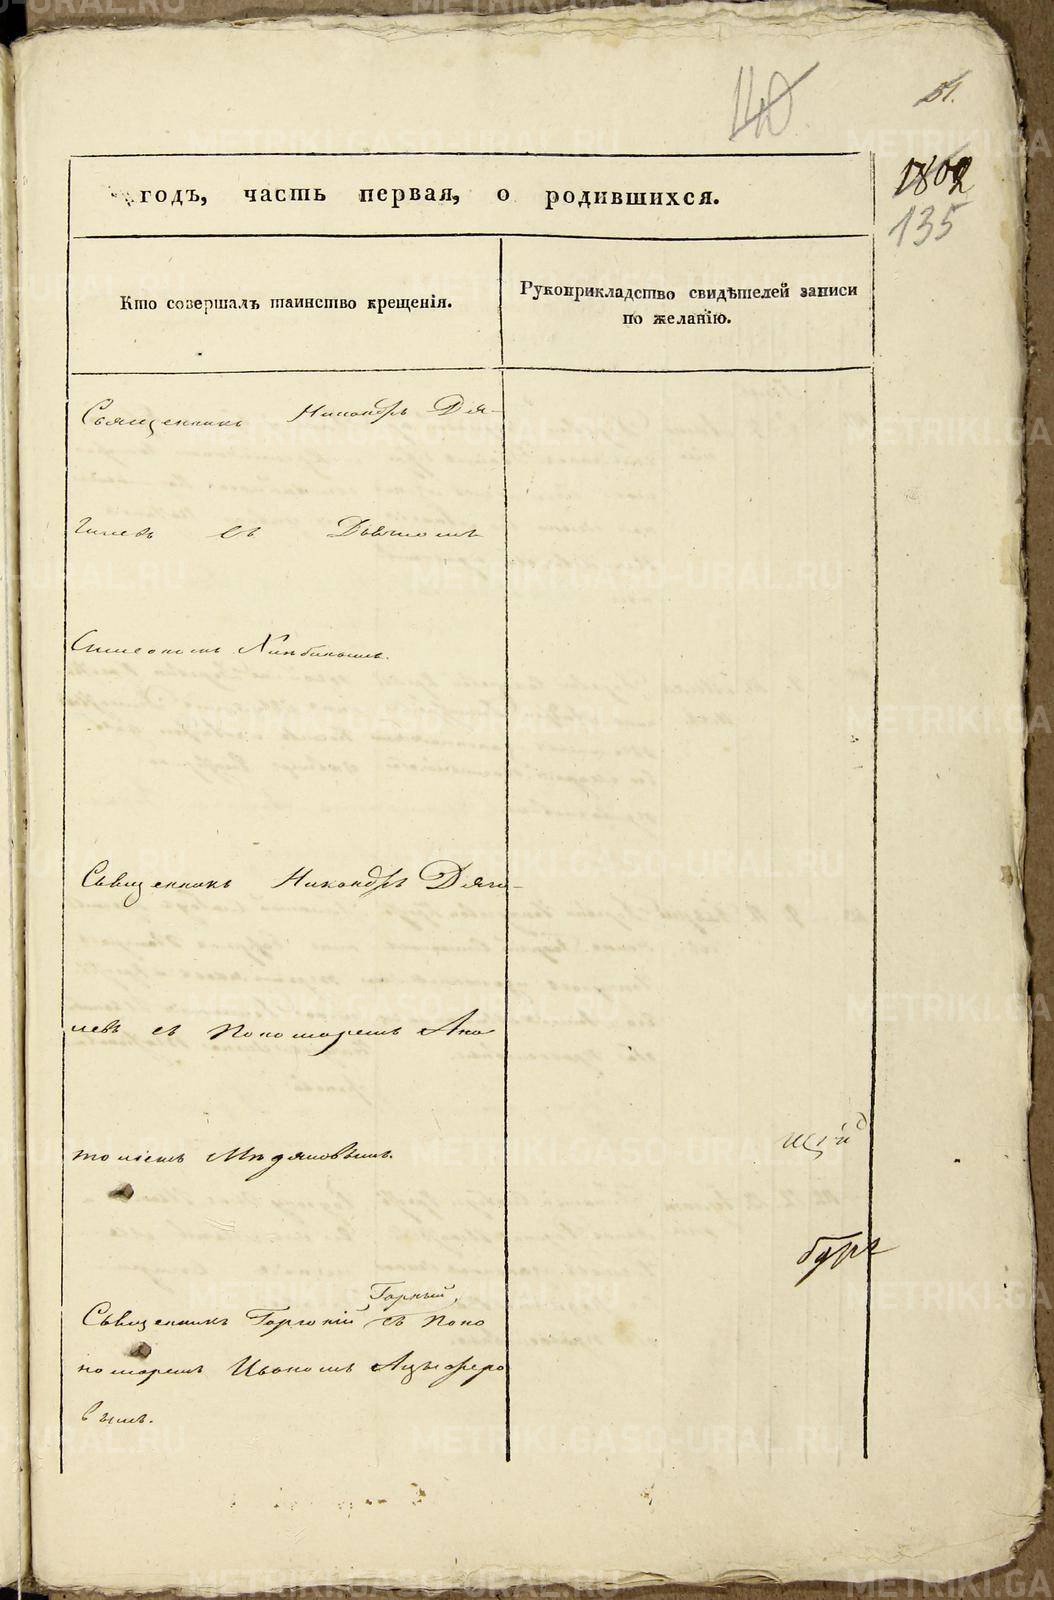 140
51.
годъ, часть первая, о родившихся.
135
Кто совершалъ таинство крещенія.
Рукоприкладство свидѣтелей записи
по желанію.
Священникъ Никандръ Дя-
гилевъ съ Дьячкомъ
Симеономъ
Священникъ Никандръ Дяги-
левъ съ Пономаремъ Ана
толіемъ
щій
Горный,
Священникъ Горгоній съ Поно
номаремъ Иваномъ Анциферо
вымъ.
METRIKI.GASO-URAL.RU